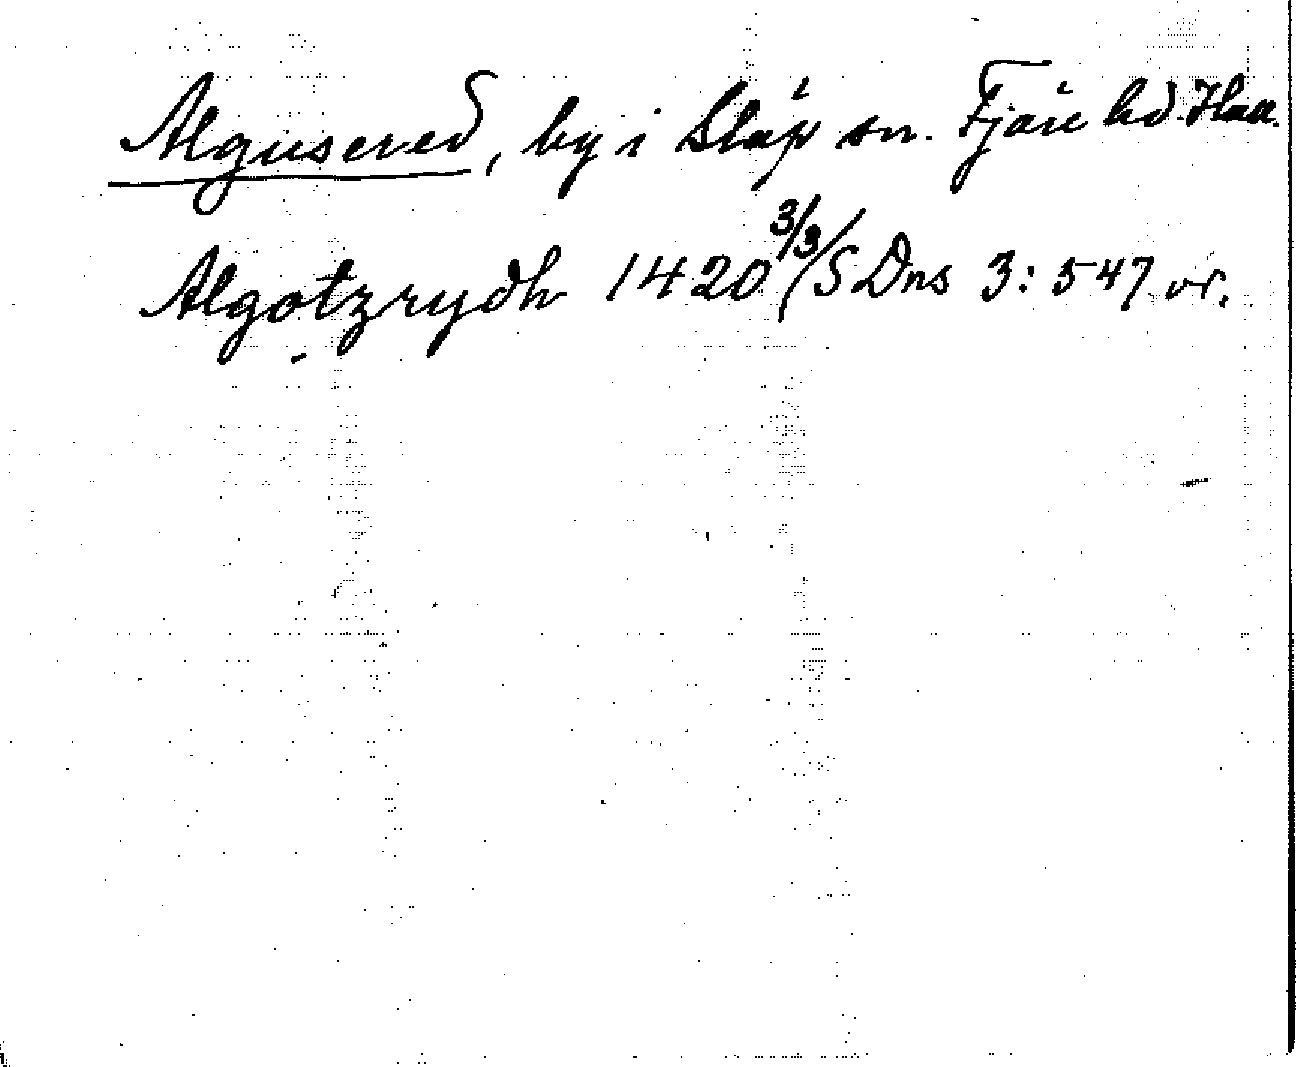 Algusered, by i Släp sn. Fjäre hd. Hall.
Algotzrydh 1420 3/3 (SDns 3: 547 or.